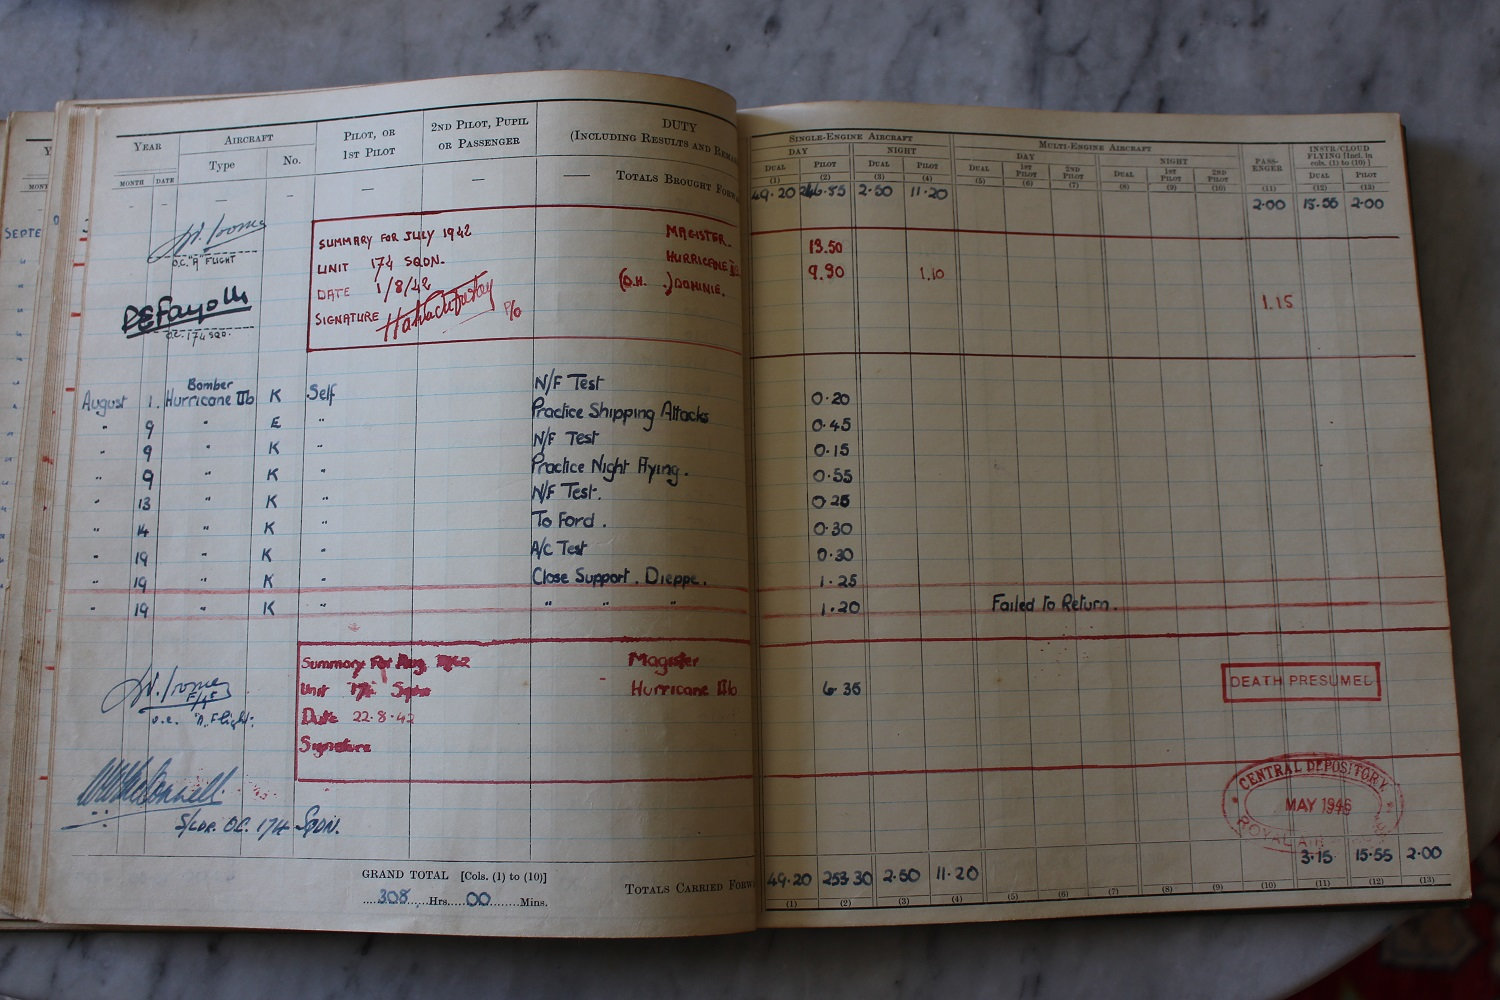 YEAR AIRCRAFT PILOT, OR 1ST PILOT 2ND PILOT, PUPIL OR PASSENGER DUTY
(INCLUDING RESULTS AND
MONTH DATE Type No.
— — — — — — — TOTALS BROUGHT
SINGLE-ENGINE AIRCRAFT MULTI-ENGINE AIRCRAFT PASS-ENGER INSTR/CLOUD FLYING [Incl. in cols. (1) to (10)]
DAY NIGHT DAY NIGHT
DUAL PILOT DUAL PILOT DUAL 1ST PILOT 2ND PILOT DUAL 1ST PILOT 2ND PILOT DUAL PILOT
(1) (2) (3) (4) (5) (6) (7) (8) (9) (10) (11) (12) (13)
49.20 246.55 2.50 11.20 2.00 15.55 2.00
SEPTE
O.C. "A" FLIGHT
O.C. 174 SQD.
SUMMARY FOR JULY 1942 MAGISTER. 13.50
UNIT 174 SQDN. HURRICANE 9.30 1.10
DATE 1/8/42 (D.H. .) DOMINIE. 1.15
SIGNATURE P/O
August 1. Bomber Hurricane IIb K Self N/F Test 0.20
" 9 " E " Practice Shipping Attacks 0.45
" 9 " K " N/F Test 0.15
" 9 " K " Practice Night Flying. 0.55
" 13 " K " N/F Test. 0.25
" 14 " K " To Ford. 0.30
" 19 " K " A/C Test 0.30
" 19 " K " Close Support. Dieppe. 1.25
" 19 " K " " " " 1.20 Failed to Return.
Summary For Aug. 1942 Magister
Unit 174 Sqdn Hurricane IIb 6.35
Date 22.8.42
Signature
O.C. "A" Flight.
DEATH PRESUMED
CENTRAL DEPOSITORY
MAY 1946
ROYAL AIR
S/LDR. O.C. 174 SQDN.
GRAND TOTAL [Cols. (1) to (10)]
308 Hrs. 00 Mins.
TOTALS CARRIED
49.20 253.30 2.50 11.20 3.15 15.55 2.00
(1) (2) (3) (4) (5) (6) (7) (8) (9) (10) (11) (12) (13)